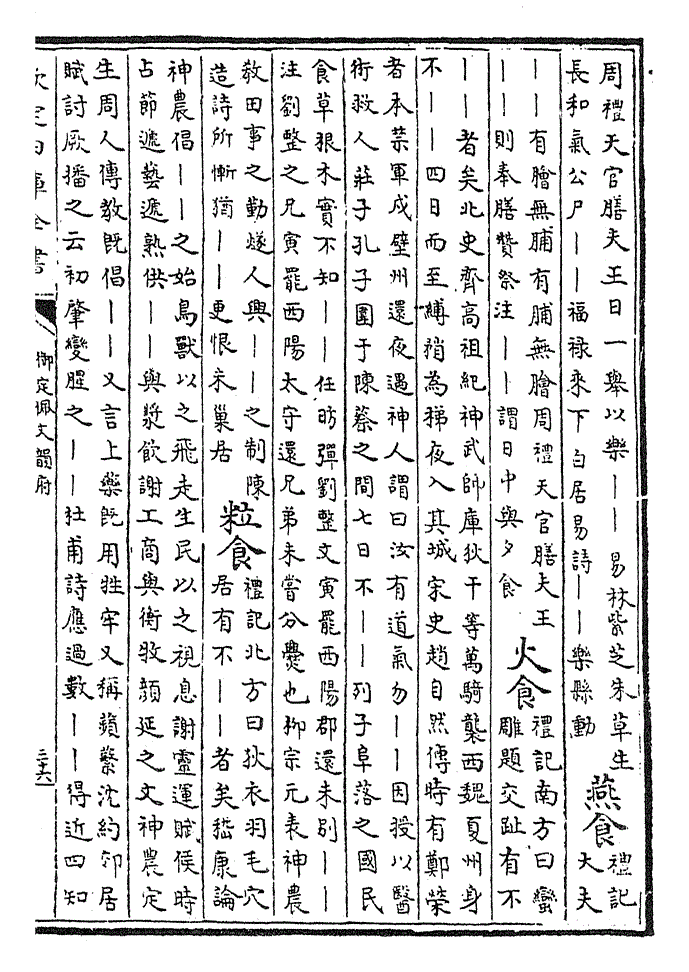 周禮天官膳夫王日一舉以樂｜｜易林紫芝朱草生
長和氣公尸｜｜福禄來下白居易詩｜｜樂縣動
燕食
禮記
大夫
｜｜有膾無脯有脯無膾周禮天官膳夫王
｜｜則奉膳贊祭注｜｜謂日中與夕食
火食
禮記南方曰蠻
雕題交趾有不
｜｜者矣北史齊高祖紀神武帥庫狄干等萬騎襲西魏夏州身
不｜｜四日而至縛矟為梯夜入其城宋史趙自然傳時有鄭榮
者本禁軍戍壁州還夜遇神人謂曰汝有道氣勿｜｜因授以醫
術救人莊子孔子圍于陳蔡之間七日不｜｜列子阜落之國民
食草根木實不知｜｜任昉彈劉整文寅罷西陽郡還未别｜｜
注劉整之兄寅罷西陽太守還兄弟未嘗分爨也柳宗元表神農
教田事之勤燧人興｜｜之制陳
造詩所慚猶｜｜更恨未巢居
粒食
禮記北方曰狄衣羽毛穴
居有不｜｜者矣嵇康論
神農倡｜｜之始鳥獸以之飛走生民以之視息謝靈運賦候時
占節遞藝遞熟供｜｜與漿飲謝工商與衡牧顔延之文神農定
生周人傳教既倡｜｜又言上藥既用牲牢又稱蘋蘩沈約郊居
賦討厥播之云初肇變腥之｜｜杜甫詩應過數｜｜得近四知
欽定四庫全書
御定佩文韻府